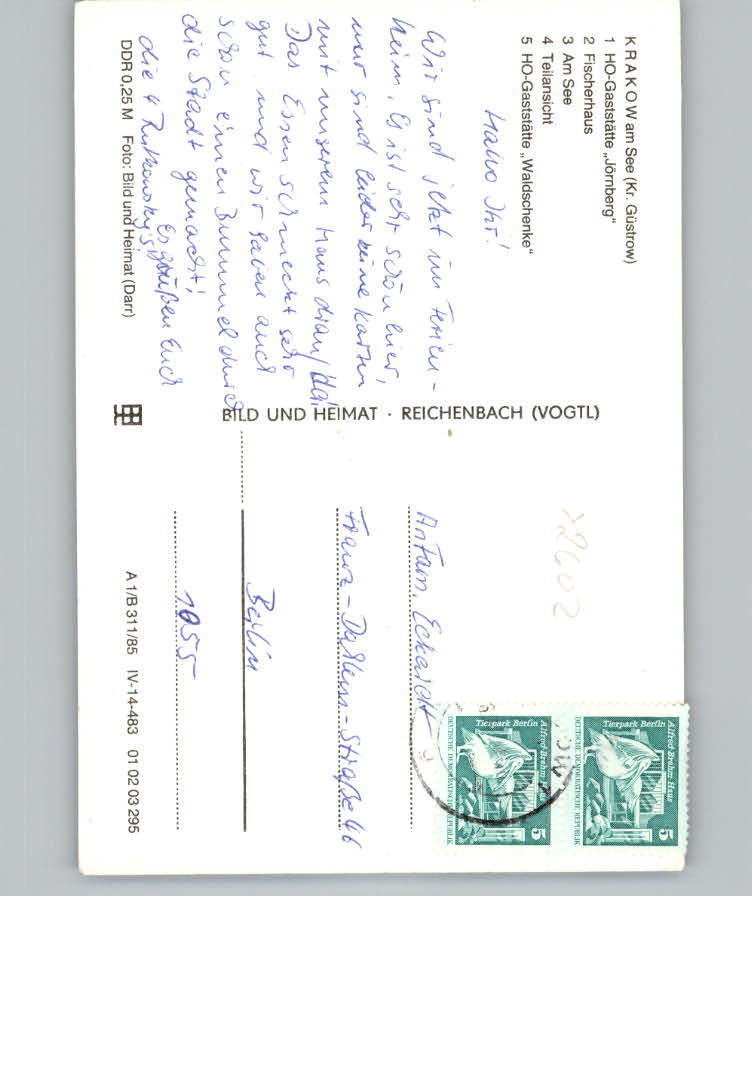 KRAKOW am See (Kr. Güstrow)
1 HO-Gaststätte „Jörnberg"
2 Fischerhaus
3 Am See
4 Teilansicht
5 HO-Gaststätte „Waldschenke"
Hallo Ihr!
Wir sind jetzt im Ferien-
heim. Es ist sehr schön hier,
nur sind leider keine Karten
mit unserem Haus dran/da.
Das Essen schmeckt sehr
gut und wir haben auch
schon einen Bummel durch
die Stadt gemacht!
Es grüßen Euch
die 4 Rutkowsky's!
DDR 0,25 M Foto: Bild und Heimat (Darr)
BILD UND HEIMAT · REICHENBACH (VOGTL)
>2602
An Fam. Eckardt
Franz-Dahlem-Straße 46
Berlin
1055
A 1/B 311/85 IV-14-483 01 02 03 295
Alfred-Brehm-Haus
Tierpark Berlin
5
DEUTSCHE DEMOKRATISCHE REPUBLIK
Alfred-Brehm-Haus
Tierpark Berlin
5
DEUTSCHE DEMOKRATISCHE REPUBLIK